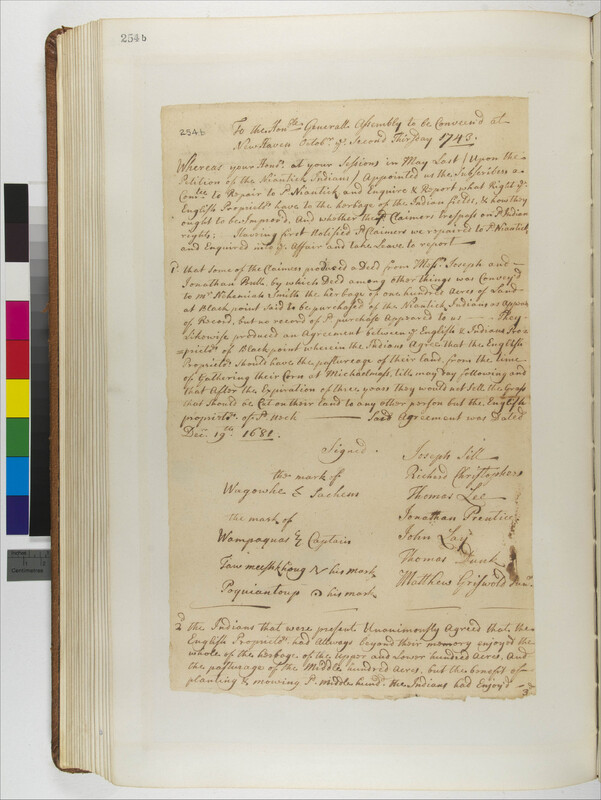 254b
254b
To the Honble Generall Assembly to be Conveend at
New Haven Octobr ye Second Thirsday 1743.
Whereas your Honrs at your Sessions in May Last / Upon the
Petition of the Niantick Indians / Appointed us the Subscribers a
Comtee to Repair to sd Niantick and Enquire & Report what Right ye
English Propriets have to the horbage of the Indian fields, & how they
ought to be Improved, And whether the sd Claimers Trespass on sd Indian
rights; Having first Notified sd Claimers we repaired to sd Niantick
and Enquired into ye Affair and take Leave to report
1 that some of the Claimers produced a deed from Messrs Joseph and
Jonathan Bulls by which Deed among other things was Convey'd
to Mr Nehemiah Smith the herbage of one hundred Acres of Land
at Black point said to be purchased of the Niantick Indians as Appears
of Record, but no record of sd purchase Appeared to us They
Likewise produced an Agreement between ye English & Indians Pro-
=priets of Blackpoint wherein the Indians Agree that the English
Propriets Should have the pastureage of their land, from the time
of Gathering their Corn at Michaelmass, till may day following and
that After the Expiration of three years they would not sell the Grass
that Should be Cut on their land to any other person but the English
propriets of sd Neck Said Agreement was Dated
Decr 19th 1681.
Signed.
Joseph Sill
Richard Christophers
Thomas Lee
Jonathan Prentice
John Lay
Thomas Dunk
Matthew Griswold Junr
the mark of
Wagowhe & Sachem
the mark of
Wampaquas & Captain
Tawmeeshhoug his mark
Poquiantoup his mark
2 the Indians that were present Unanimously Agreed that the
English Propriets had Allways beyond their memory enjoyd the
whole of the herbage of the upper and Lower hundred Acres. And
the pastureage of the Middle hundred Acres, but the benefit of
planting & mowing sd middle hund. the Indians had Enjoyd
3